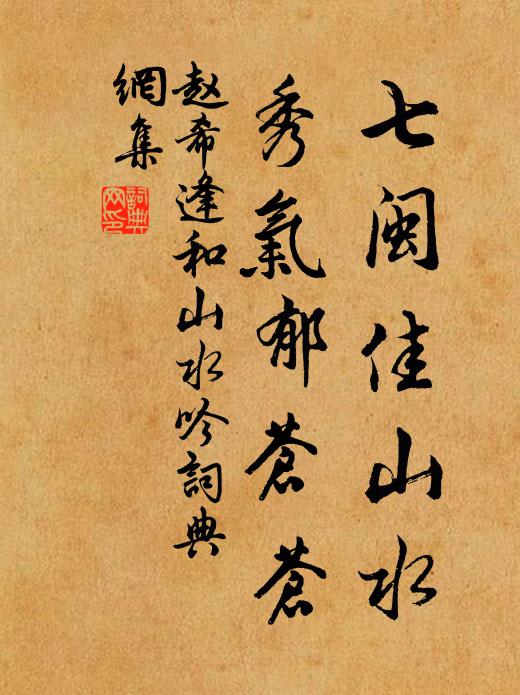 七闽佳山水
秀氣郁蒼蒼
赵希逢和山水吟詞典
網集
詞典
网印